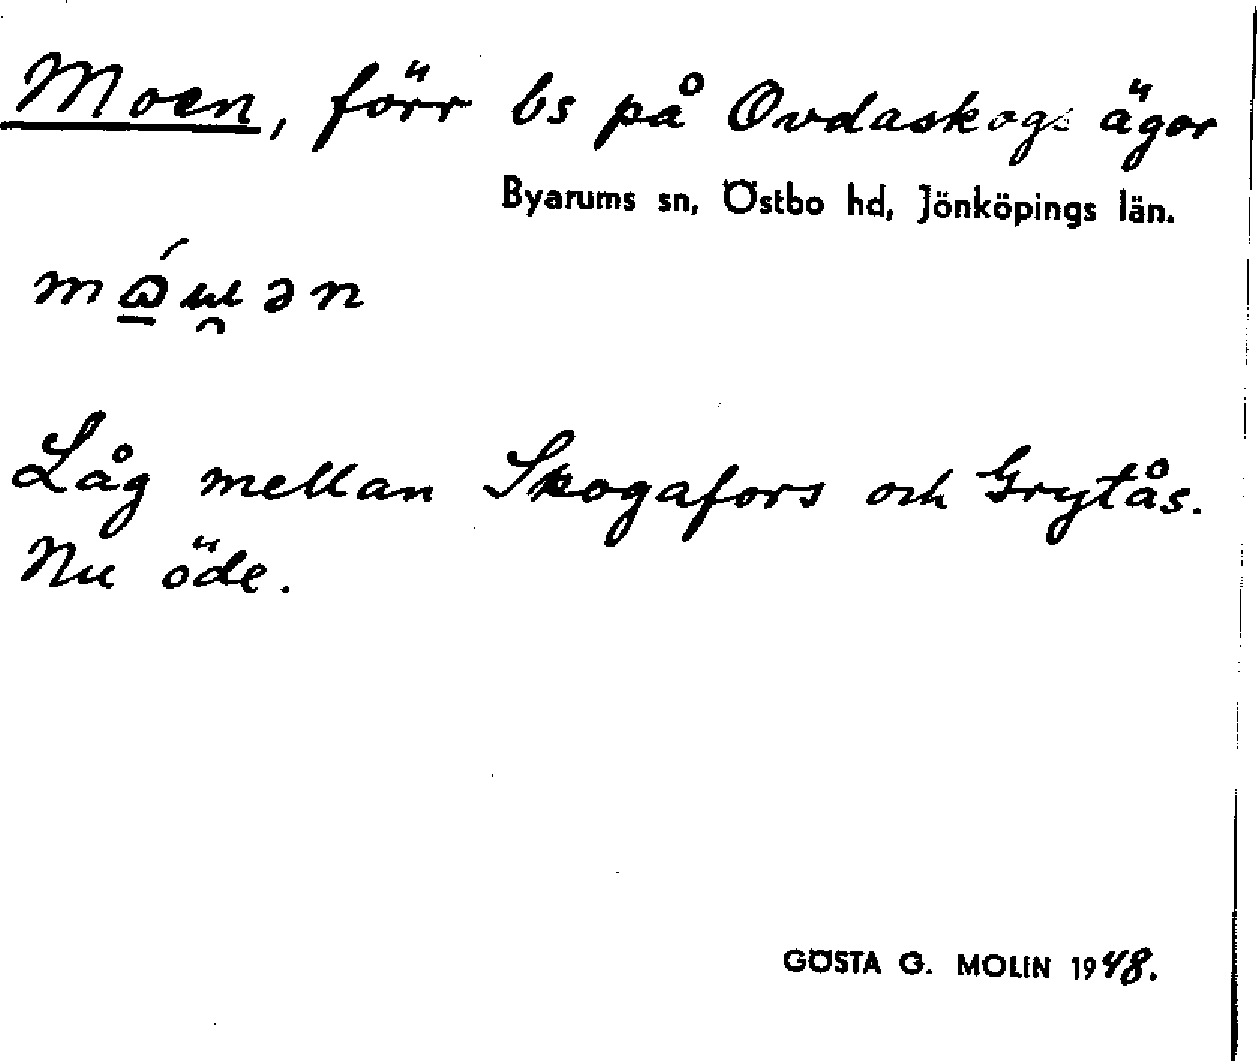 Moen, förr bs på Ovdaskogs ägor
Byarums sn, Östbo hd, Jönköpings län.
Låg mellan Skogafors och Grytås.
Nu öde.
GÖSTA G. MOLIN 1948.